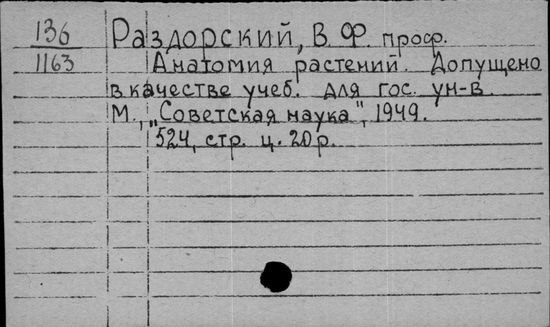 136
1163
Раздорский, В. Ф. проф.
Анатомия растений. Допущено
в качестве учеб. для гос. ун-в.
М., "Советская наука", 1949.
524, стр. ц. 20 р.